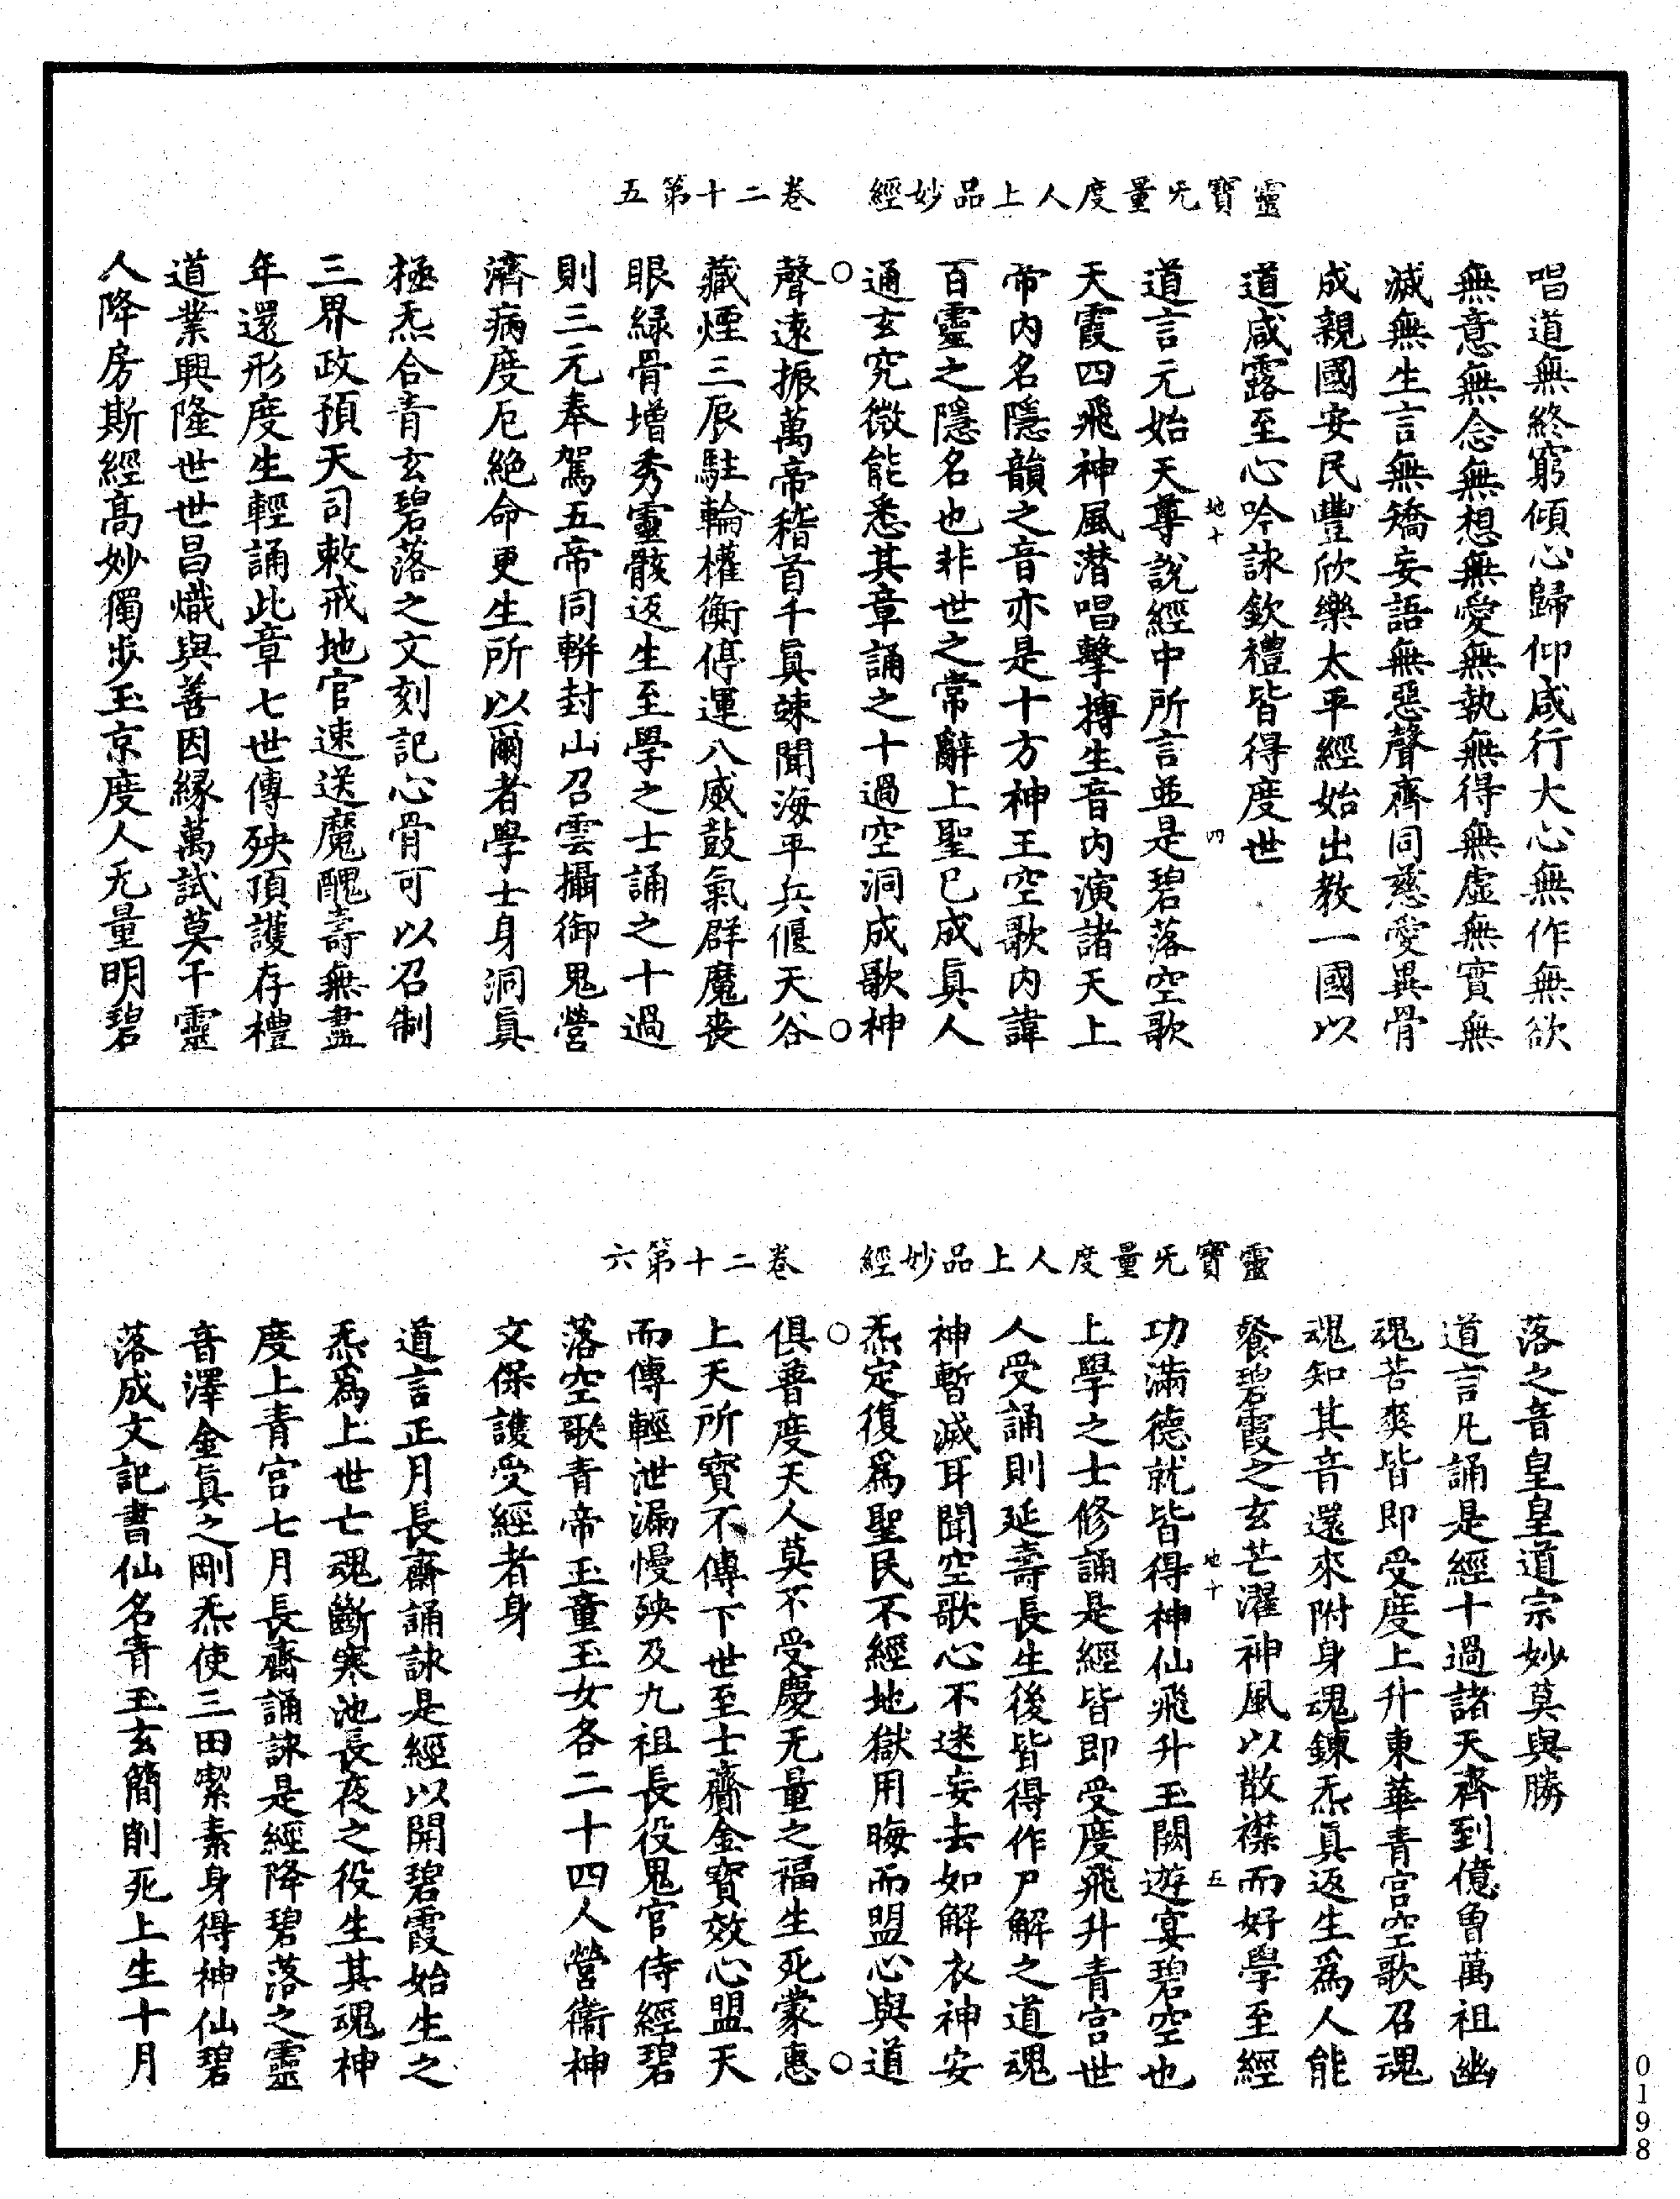 靈寶旡量度人上品妙經 卷二十第五
唱道無終窮傾心歸仰咸行大心無作無欲
無意無念無想無愛無執無得無虛無實無
滅無生言無矯妄語無惡聲齊同慈愛異骨
成親國安民豐欣樂太平經始出教一國以
道咸露至心吟詠欽禮皆得度世
地十 四
道言元始天尊說經中所言並是碧落空歌
天霞四飛神風潛唱擊摶生音內演諸天上
帝內名隱韻之音亦是十方神王空歌內諱
百靈之隱名也非世之常辭上聖已成眞人
通玄究微能悉其章誦之十過空洞成歌神
聲遠振萬帝稽首千眞竦聞海平兵偃天谷
藏煙三辰駐輪權衡停運八威鼓氣群魔喪
眼綠骨增秀靈骸返生至學之士誦之十過
則三元奉駕五帝同軿封山召雲攝御鬼營
濟病度厄絶命更生所以爾者學士身洞眞
極炁合青玄碧落之文刻記心骨可以召制
三界政預天司敕戒地官速送魔醜壽無盡
年還形度生輕誦此章七世傳殃頂護存禮
道業興隆世世昌熾與善因緣萬試莫干靈
人降房斯經高妙獨步玉京度人无量明碧
靈寶旡量度人上品妙經 卷二十第六
落之音皇皇道宗妙莫與勝
道言凡誦是經十過諸天齊到億曾萬祖幽
魂苦爽皆即受度上升東華青宮空歌召魂
魂知其音還來附身魂鍊炁眞返生爲人能
餐碧霞之玄芒濯神風以散襟而好學至經
地十 五
功滿德就皆得神仙飛升玉闕遊宴碧空也
上學之士修誦是經皆即受度飛升青宮世
人受誦則延壽長生後皆得作尸解之道魂
神暫滅耳聞空歌心不迷妄去如解衣神安
炁定復爲聖民不經地獄用晦而盟心與道
俱普度天人莫不受慶无量之福生死蒙惠
上天所寶不傳下世至士齎金寶效心盟天
而傳輕泄漏慢殃及九祖長役鬼官侍經碧
落空歌青帝玉童玉女各二十四人營衞神
文保護受經者身
道言正月長齋誦詠是經以開碧霞始生之
炁爲上世七魂斷寒池長夜之役生其魂神
度上青宮七月長齋誦詠是經降碧落之靈
音澤金眞之剛炁使三田潔素身得神仙碧
落成文記書仙名青玉玄簡削死上生十月
0198